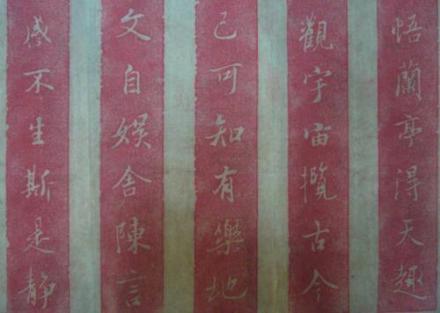 悟蘭亭得天趣
觀宇宙攬古今
己可知有樂地
文自娛舍陳言
感不生斯是静